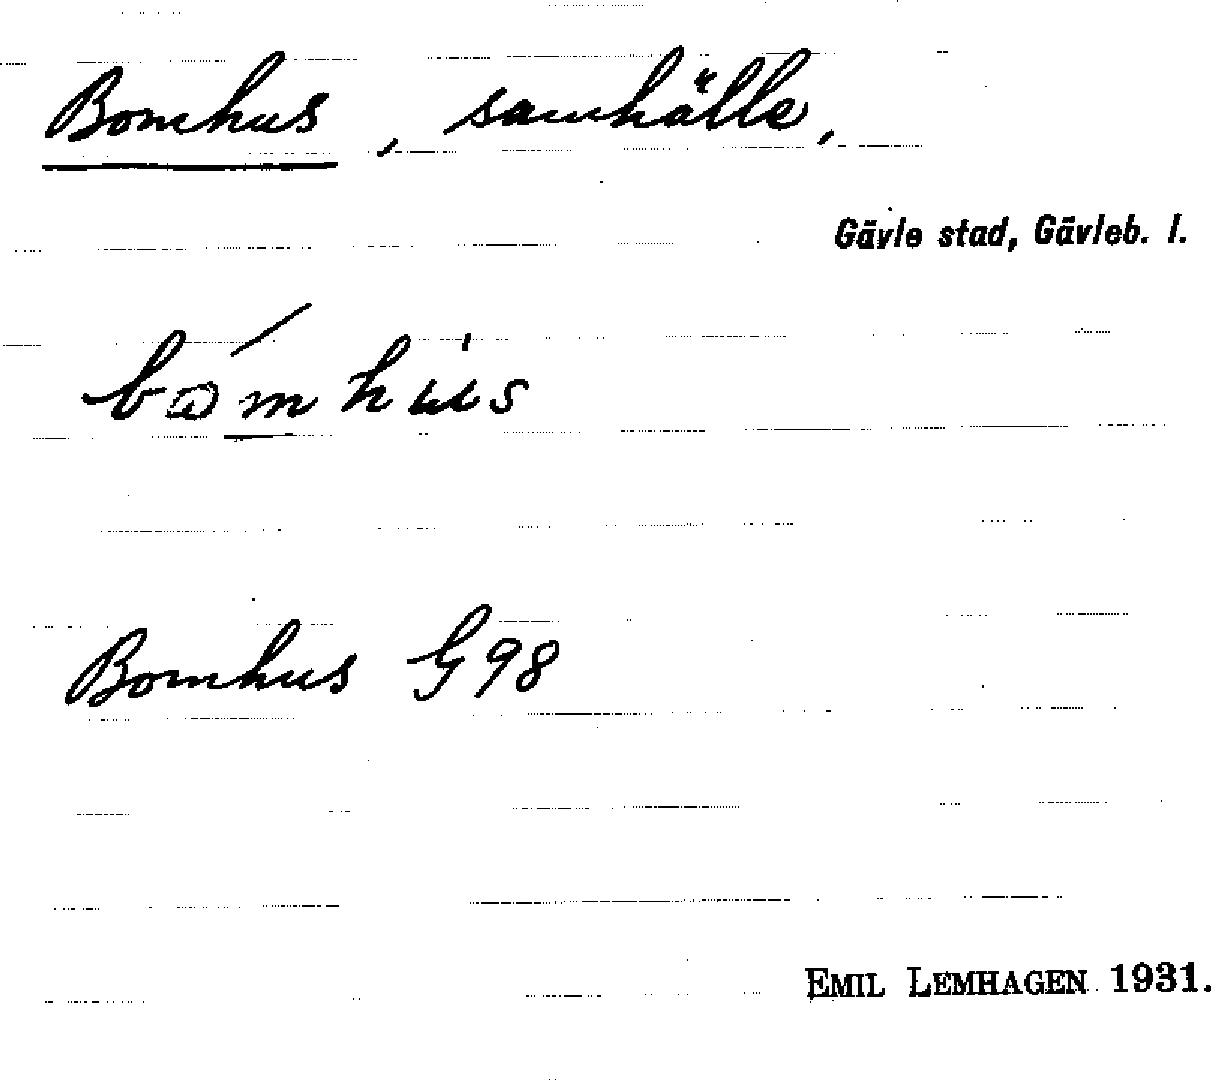 Bomhus, samhälle,
Gävle stad, Gävleb. l.
Bomhus G98
EMIL LEMHAGEN 1931.